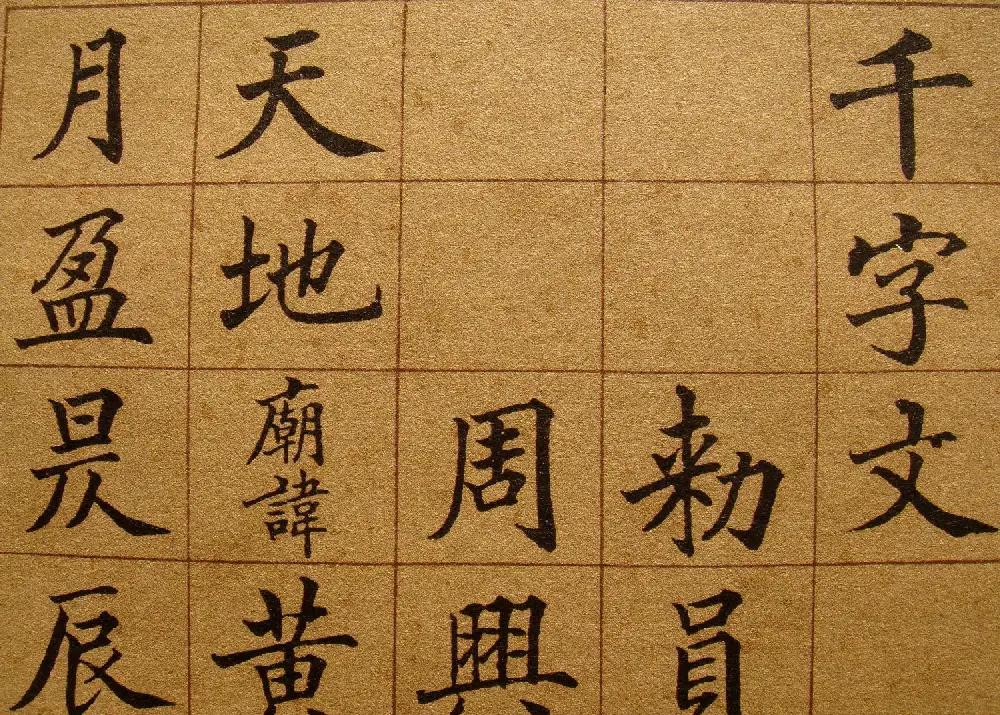 千字文
勑員
周興
天地廟諱黄
月盈昃辰